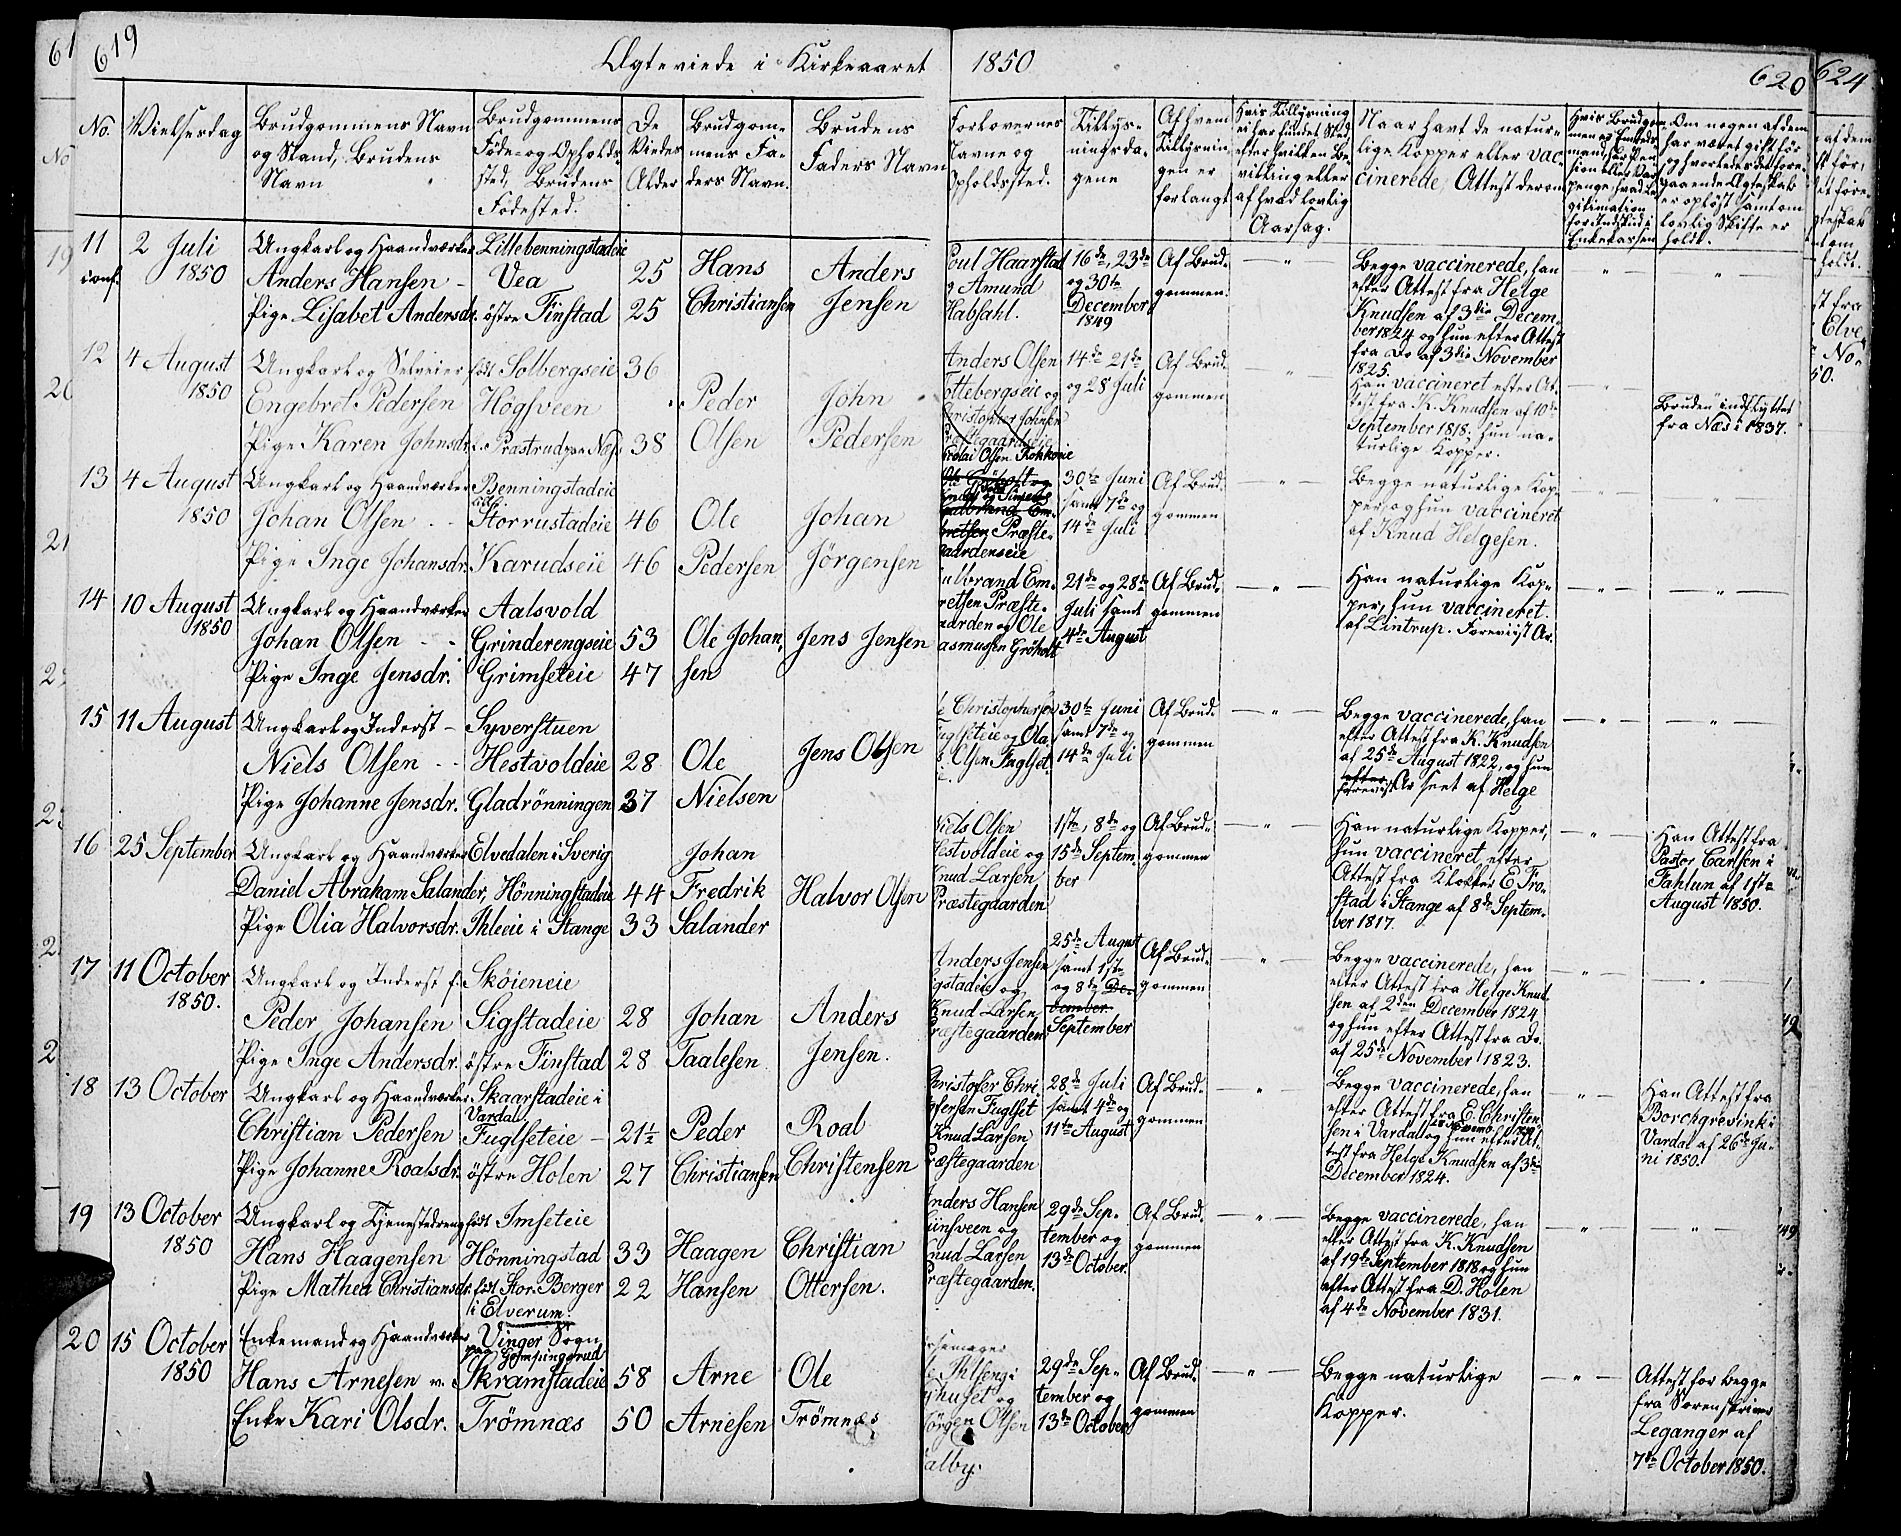 619
Ægteviede i Kirkeaaret 1850
620
624
No.
Vielsesdag
Brudgommens Navn
og Stand, Brudens
Navn
Brudgommens
Føde- og Opholds-
sted, Brudens
Fødested.
De
Viedes
Alder
Brudgom-
mens Fa-
ders Navn.
Brudens
Faders Navn
Forlovernes
Navne og
Opholdssted.
Tillys-
ningsda-
gene
Af hvem
Tillysnin-
gen er
forlangt
Hvis Tillysning
ei har fundet Sted
efter hvilken Be-
villing eller
af hvad lovlig
Aarsag.
Naar havt de natur-
lige Kopper eller vac-
cinerede, Attest derom
Om nogen af dem
har været gift før
og hvorledes det fore-
gaaende Ægteskab
er opløst samt om
lovlig Skifte er
holdt.
11
conf.
2 Juli
1850
Ungkarl og Haandværker
Anders Hansen -
Pige Lisabet Andersdr.
Lillebenningstadeie
Vea
østre Finstad
25
25
Hans
Christiansen
Anders
Jensen
Poul Haarstad
og Amund
Habsahl.
16de, 23de
og 30te
December
1849
Af Brud-
gommen.
Begge vaccinerede, han
efter Attest fra Helge
Knudsen af 3die Decem-
ber 1824 og hun efter Attest
fra Do af 3die November
1825.
12
4 August
1850
Ungkarl og Selveier
Engebret Pedersen
Pige Karen Johnsdr.
født Solbergseie
Høgsveen
Præstrud paa Næs
36
38
Peder
Olsen
John
Pedersen
Anders Olsen
ottebergseie og
Christopher Johnsen
Præstegaardseie
14de 21de
og 28 Juli
Af Brud-
gommen
Han vaccineret efter At-
test fra K. Knudsen af 10de
September 1818, hun na-
turlige Kopper.
Bruden indflyttet
fra Næs i 1837.
13
4 August
1850
Ungkarl og Haandværker
Johan Olsen
Pige Inge Johansdr.
Benningstadeie
Storrustadeie
Karudseie
46
46
Ole
Pedersen
Johan
Jørgensen
Nicolai Olsen Kokkoeie
Præste-
gaardenseie
30te Juni
samt 7de og
14de Juli
Af Brud-
gommen
Begge naturlige Kop-
per, og hun vaccineret
af Knud Helgesen.
14
10 August
1850
Ungkarl og Haandværker
Johan Olsen
Pige Inge Jensdr.
Aalsvold
Grinderengseie
Grimseteie
53
47
Ole Johan-
sen
Jens Jensen
Gulbrand Em-
bretsen Præste-
gaarden og Ole
Rasmussen Grøholt
21de og 28de
Juli samt
4de August
Af Brud-
gommen
Han naturlige Kop-
per, hun vaccineret
af Lintrup. Foreviist Ar.
15
11 August
Ungkarl og Inderst -
Niels Olsen
Pige Johanne Jensdr.
Syverstuen
Hestvoldeie
Gladrönningen
28
37
Ole
Nielsen
Jens Olsen
Ole Christophersen
Fuglseteie og Ola
Olsen Fuglset-
30te Juni
samt 7de og
14de Juli
Af Brud-
gommen
Begge vaccinerede, han
efter Attest fra K. Knudsen
af 25de August 1822, og hun
efter
foreviist Ar seet af Helge
16
25 September
Ungkarl og Haandværker
Daniel Abraham Salander,
Pige Olia Halvorsdr.
Elvedalen i Sverig
Hönningstadeie
Ihleeie i Stange
44
33
Johan
Fredrik
Salander
Halvor Olsen
Niels Olsen
Hestvoldeie og
Knud Larsen
Præstegaarden
1ste, 8de og
15de Septem-
ber
Af Brud-
gommen
Han naturlige Kopper,
hun vaccineret efter
Attest fra Klokker E. Fro-
stad i Stange af 8de Septem-
ber 1817.
Han Attest fra
Pastor Carlsen i
Fahlun af 1ste
August 1850.
17
11 October
1850.
Ungkarl og Inderst f.
Peder Johansen
Pige Inge Andersdr.
Skøieneie
Sigstadeie
østre Finstad
28
28
Johan
Taalesen
Anders
Jensen.
Anders Jensen
Sigstadeie og
Knud Larsen
Præstegaarden
25de August
samt 1ste
og 8de De-
cember
September
Af Brud-
gommen
Begge vaccinerede, han
efter Attest fra Helge Knud-
sen af 2den December 1824
og hun efter Attest fra Do.
af 25de November 1823.
18
13 October
Ungkarl og Haandværker
Christian Pedersen
Pige Johanne Roalsdr.
Skaarstadeie i
Vardal
Fuglseteie -
østre Holen
21½
27
Peder
Christiansen
Roal
Christensen
Christofer Chri-
stophersen Fuglset
Knud Larsen
Præstegaarden
28de Juli
samt 4de og
11te August
Af Brud-
gommen
Begge vaccinerede, han
efter Attest fra E. Christen-
sen i Vardal og hun efter At-
test fra Helge Knudsen af 3die
December 1824.
Han Attest fra
Borchgrevink i
Vardal af 26de Ju-
ni 1850.
19
13 October
1850
Ungkarl og Tjenestedreng
Hans Haagensen
Pige Mathea Christiansdr.
født Imseteie
Hönningstad
født Stor-Berger
i Elverum.
33
22
Haagen
Hansen
Christian
Ottersen.
Anders Hansen
Grinsveen og
Knud Larsen
Præstegaarden.
29de Sep-
tember og
13de October.
Af Brud-
gommen
Begge vaccinerede, han
efter Attest fra K. Knudsen
af 19de September 1818 og hun
efter Attest fra D. Holen
af 4de November 1831.
20
15 October
1850
Enkemand og Haandværker
Hans Arnesen
Enke Kari Olsdr.
Vinger Sogn
Skramstadeie
Trömnæs
58
50
Arne
Arnesen
Ole
Trömnæs
Jørgen Olsen
alby.
29de Sep-
tember og
13de October
Af Brud-
gommen
Begge naturlige
Kopper.
Attest for begge
fra Sorenskriver
Leganger af
7de October 1850.